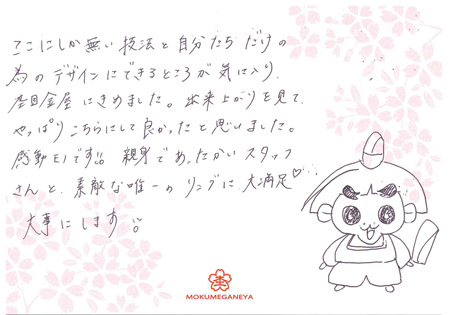 ここにしか無い技法と自分たちだけの
為のデザインにできるところが気に入り、
杢目金屋にきめました。出来上がりを見て、
やっぱりこちらにして良かったと思いました。
感動モノです!! 親身であったかいスタッフ
さんと、素敵な唯一のリングに、大満足♡
大事にします!!
杢
MOKUMEGANEYA